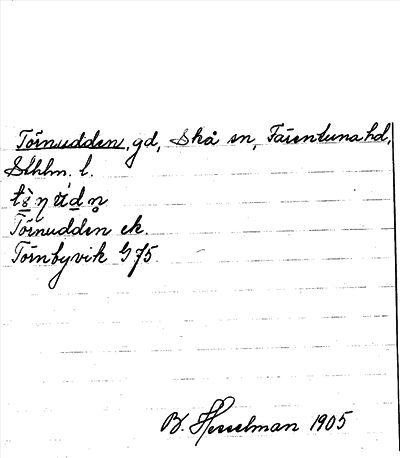 Törnudden, gd, Skå sn, Färentuna hd,
Sthlm. l.
Törnudden ek.
Törnbyvik G 75.
B. Hesselman 1905